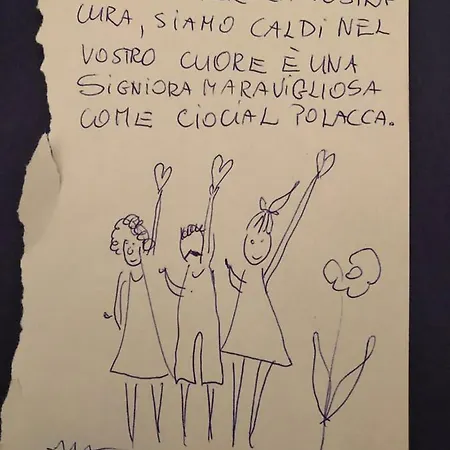 CURA, SIAMO CALDI NEL
VOSTRO CUORE È UNA
SIGNIORA MARAVIGLIOSA
COME CIOCIAL POLACCA.